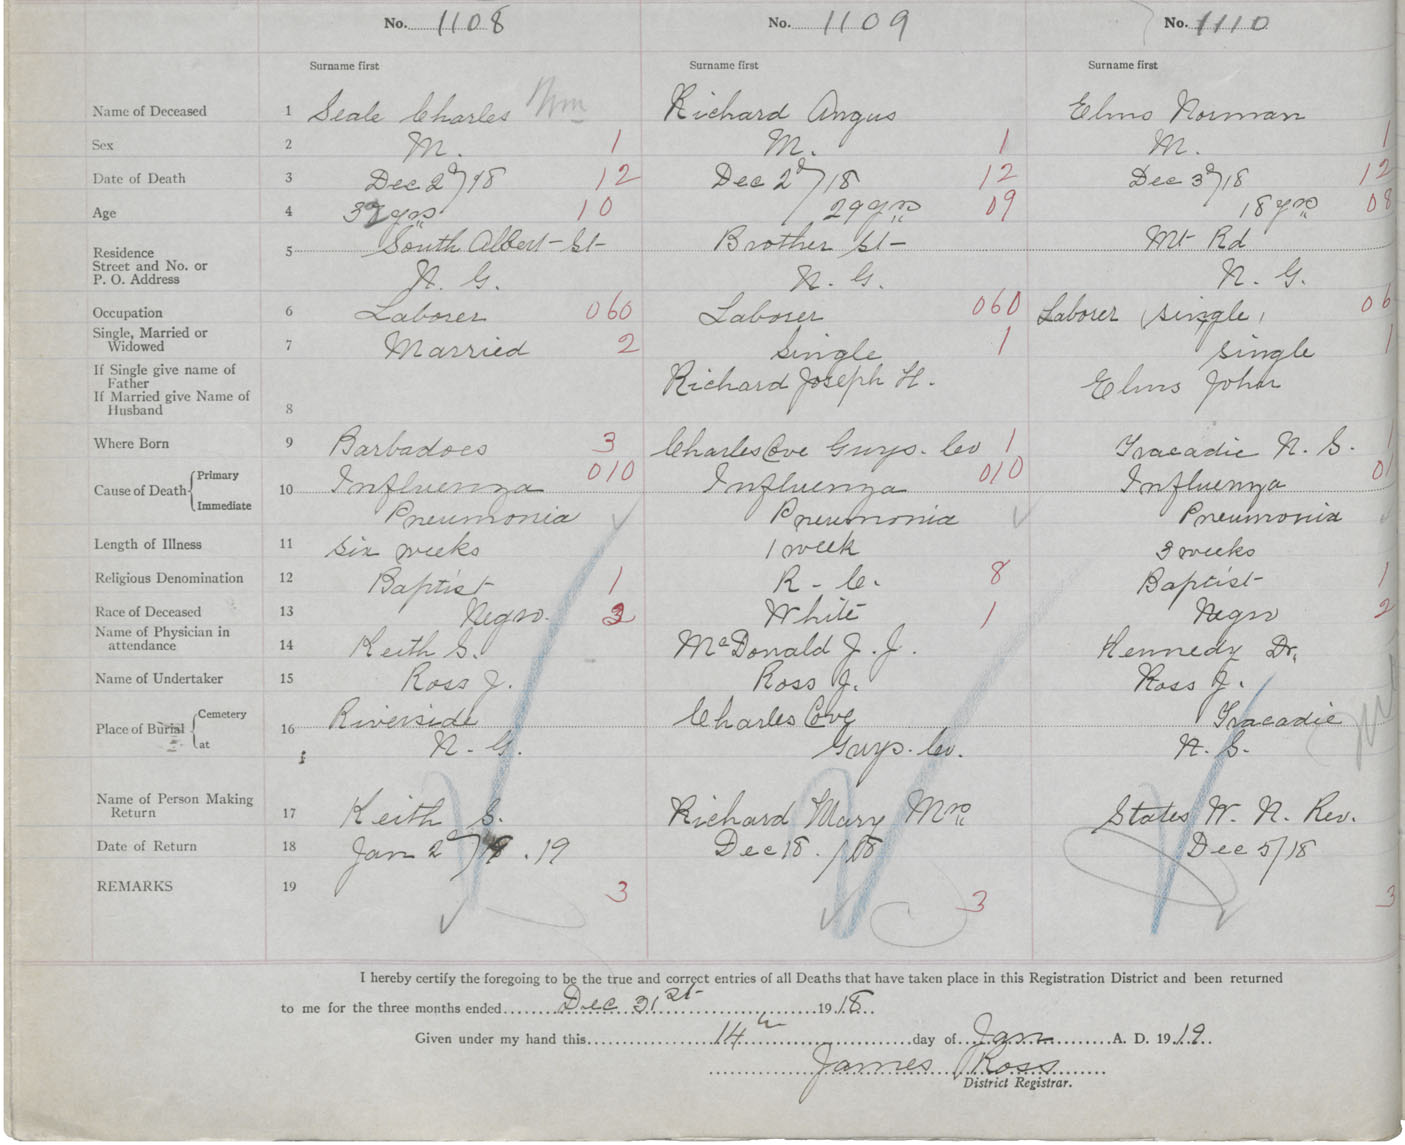 No. 1108 No. 1109 No. 1110
Surname first Surname first Surname first
Name of Deceased 1 Seale Charles Wm Richard Angus Elms Norman
Sex 2 M. 1 M. 1 M. 1
Date of Death 3 Dec 2d/18 12 Dec 2d/18 12 Dec 3d/18 12
Age 4 yrs 10 29 yrs 09 18 yrs 08
Residence
Street and No. or 5 South Albert St Brother St Mt Rd
P. O. Address N. G. N. G. N. G.
Occupation 6 Laborer 060 Laborer 060 Laborer single 06
Single, Married or
Widowed 7 Married 2 Single 1 single 1
If Single give name of
Father Richard Joseph H. Elms John
If Married give Name of
Husband 8
Where Born 9 Barbadoes 3 Charles Cove Guys. Co 1 Tracadie N. S. 1
Cause of Death Primary 10 Influenza 010 Influenza 010 Influenza 01
Immediate Pneumonia Pneumonia Pneumonia
Length of Illness 11 six weeks 1 week 3 weeks
Religious Denomination 12 Baptist 1 R. C. 8 Baptist 1
Race of Deceased 13 Negro. White 1 Negro 2
Name of Physician in
attendance 14 Keith S. McDonald J. J. Kennedy Dr.
Name of Undertaker 15 Ross J. Ross J. Ross J.
Place of Burial Cemetery 16 Riverside Charles Cove Tracadie
at N. G. Guys. Co. N. S.
Name of Person Making
Return 17 Keith S. Richard Mary Mrs States W. N. Rev.
Date of Return 18 Jan 2d/ 19 Dec 18./18 Dec 5/18
REMARKS 19 3 3 3
I hereby certify the foregoing to be the true and correct entries of all Deaths that have taken place in this Registration District and been returned
to me for the three months ended Dec 31st 1918.
Given under my hand this 14th day of Jan A. D. 1919.
James Ross
District Registrar.